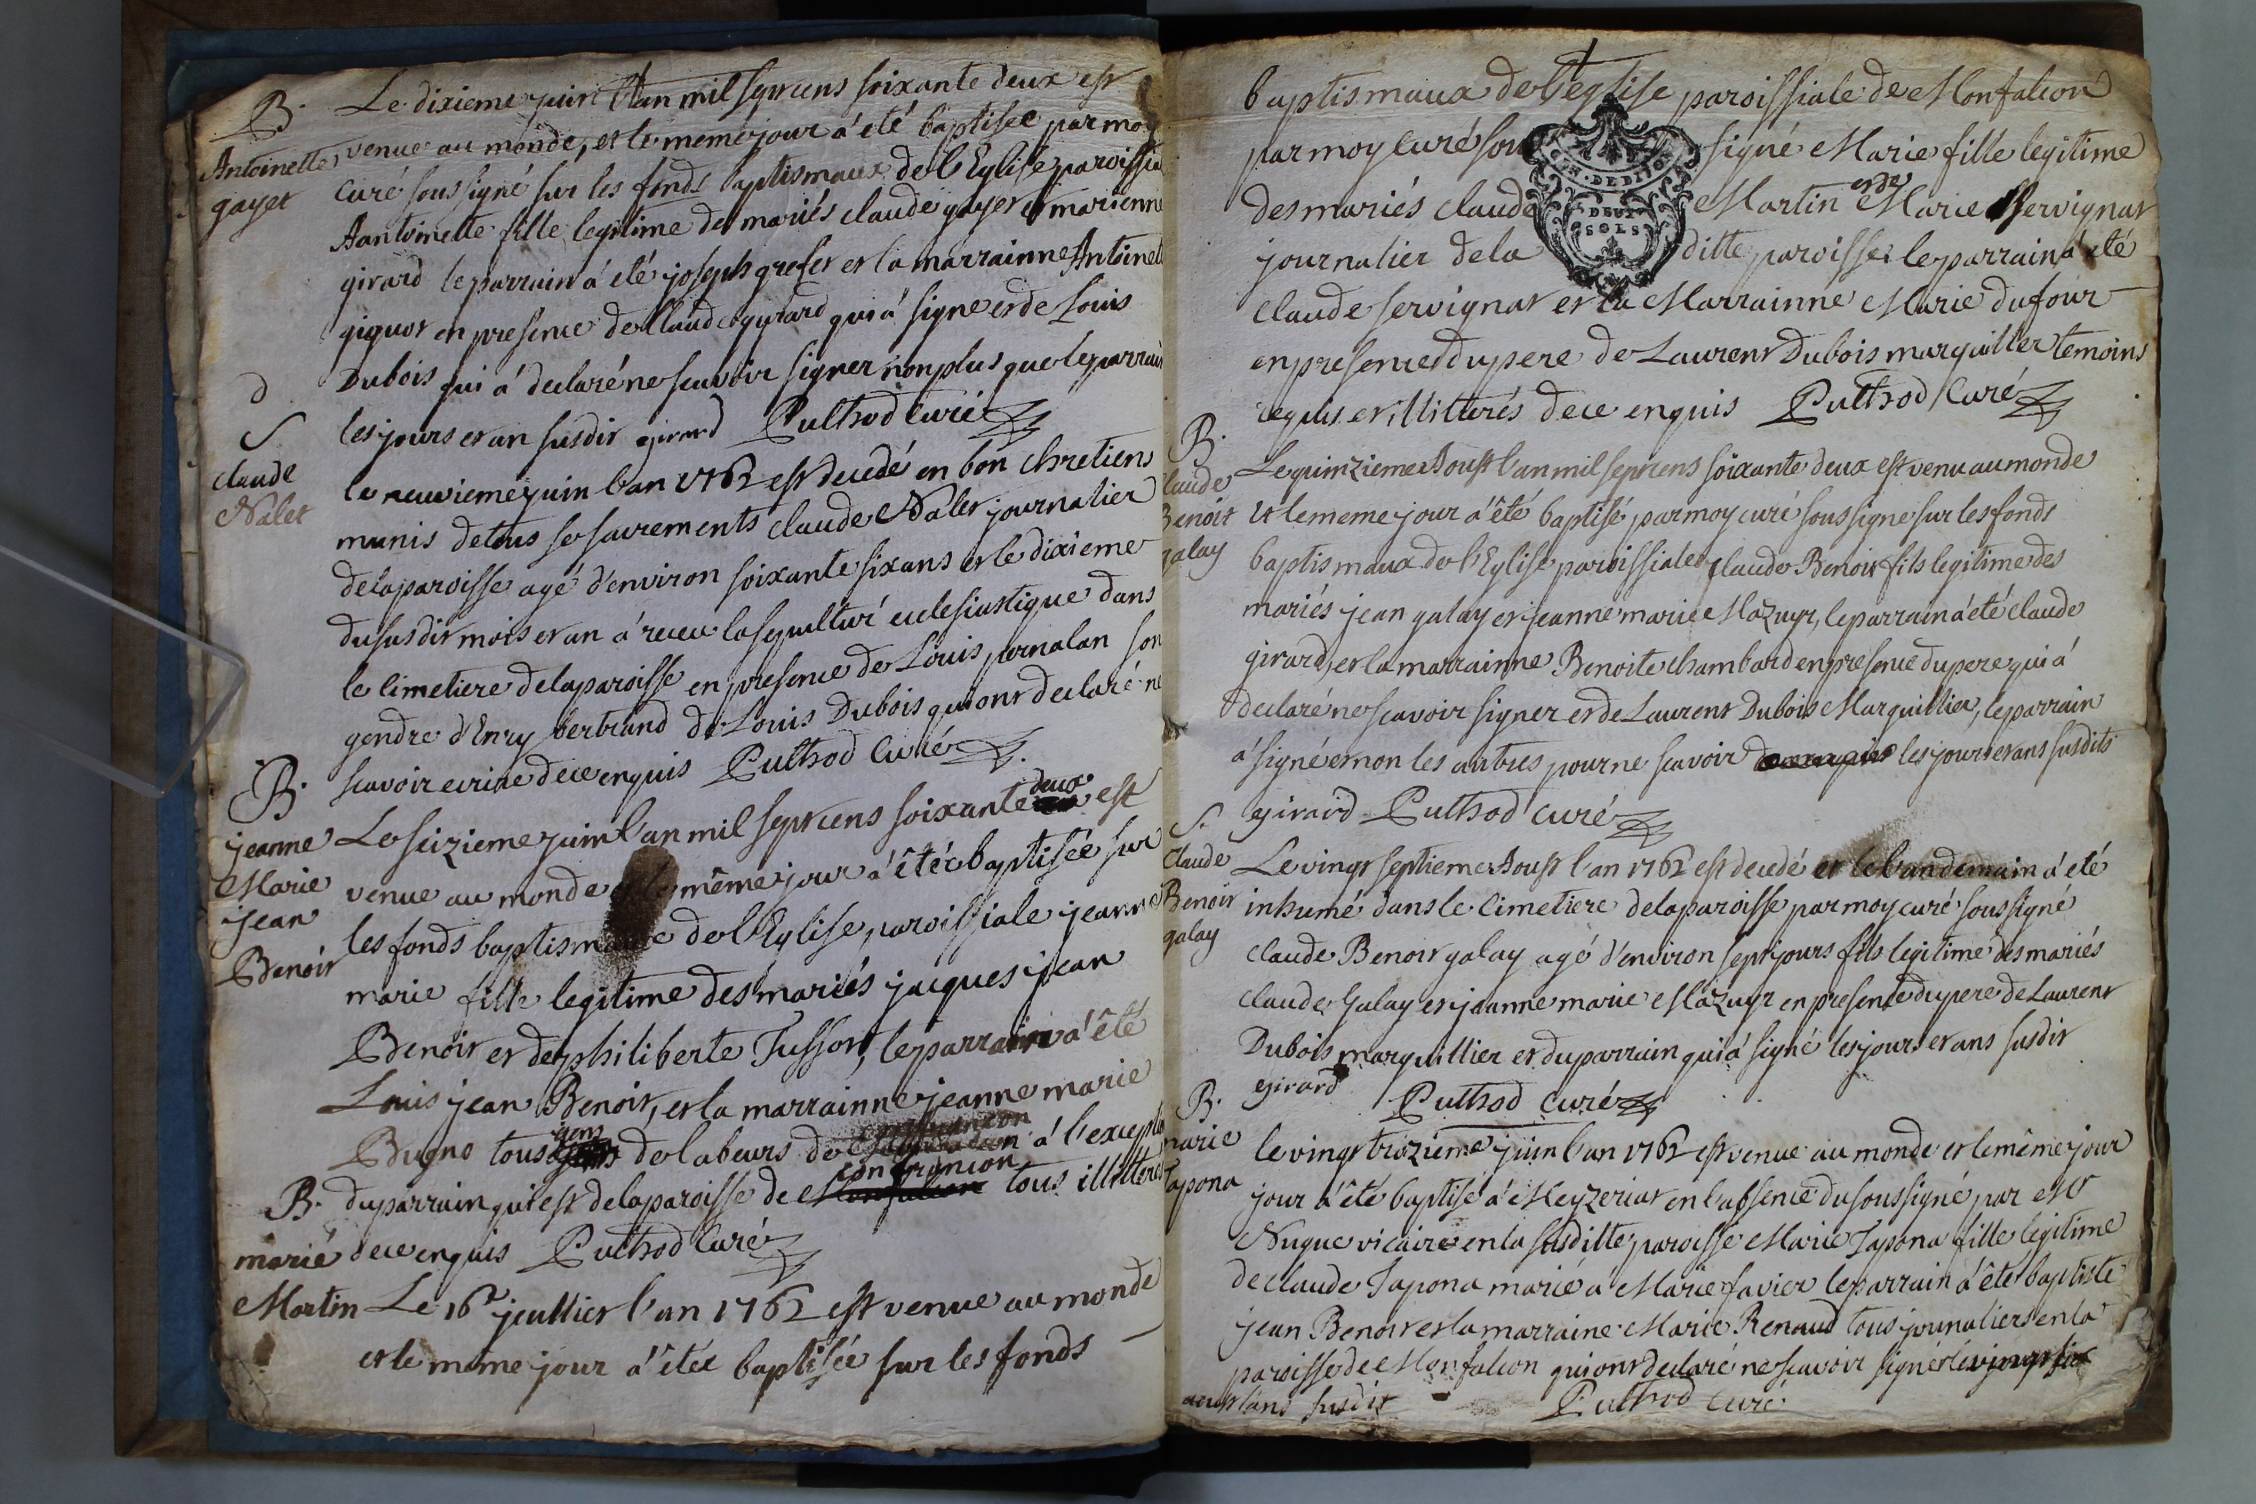 B.
Antoinette
gayet
Le dixieme juin l'an mil sept cens soixante deux est
venue au monde, et le meme jour a été baptisée par moy
curé soussigné sur les fonds baptismaux de l'Eglise paroissia
Aantoinette fille legitime des mariés claude gayet et marienne
girard le parrain á eté joseph grefet et la marrainne Antoinet
giquot en presence de Claude gyrard qui a signe et de Louis
Dubois qui á declaré ne scavoir signer non plus que le parrain
les jours et an susdit girard Puthod Curé
d
S
claude
Nalet
le neuvieme juin l'an 1762 est decedé en bon chretiens
munis de tous se sacrements claude Nalet journalier
de la paroisse agé d'environ soixante six ans et le dixieme
du susdit mois et an á receu la sepulturé eclesiastique dans
le cimetiere de la paroisse en presence de Louis pornalan son
gendre d'Enry bertrand de Louis Dubois qui ont declaré ne
scavoir ecrire de ce enquis Puthod Curé
B.
jeanne
Marie
jean
Benoit
Le seizieme juin l'an mil sept cens soixante deux est
venue au monde et le même jour á êtée baptisée sur
les fonds baptismaux de l'Eglise paroissiale jeanne
marie fille legitime des mariés jacques jean
Benoit et de philiberte Tusson, le parrain á êté
Louis jean Benoit, et la marrainne jeanne marie
Bugno tous gens de labeurs de confrancon á l'exception
du parrain qui est de la paroisse de confrancon tous illitteres
de ce enquis Puthod Curé
B.
marie
Martin
Le 16e jeullier l'an 1762 est venue au monde
et le même jour á êtée baptisée sur les fonds
baptismaux de l'eglise paroissiale de Monfalcon
par moy curé sou signé Marie fille legitime
des mariés claude Martin et de Marie Servignat
journalier de la ditte paroisse le parrain á eté
claude servignat et la Marrainne Marie dufour
en presence du pere de Laurent Dubois marguillier temoins
requis et illiterés de ce enquis Puthod Curé
DEUX
SOLS
B.
Claude
Benoit
galay
Le quinzieme Aoust l'an mil sept cens soixante deux est venu au monde
et le meme jour á été baptisé par moy curé soussigné sur les fonds
baptismaux de l'Eglise paroissiale claude Benoit fils legitime des
mariés jean galay et jeanne marie Mazuyr, le parrain á eté claude
girard, et la marrainne Benoite chambard en presence du pere qui á
declaré ne scavoir signer et de Laurent Dubois Marguillier, le parrain
á signé et non les autres pour ne scavoir les jours et ans susdits
girard Puthod curé
S.
Claude
Benoit
galay
Le vingt septieme Aoust l'an 1762 est decedé et le landemain á été
inhumé dans le cimetiere de la paroisse par moy curé soussigné
claude Benoit galay agé d'environ sept jours fils legitime des mariés
claude Galay et jeanne marie Mazuyr en presence du pere de Laurent
Dubois marguillier et du parrain qui á signé les jours et ans susdit
girard Puthod curé
B.
marie
Tapona
le vingt troizieme juin l'an 1762 est venue au monde et le même jour
jour á êté baptisé á Meyzeriat en l'absence du soussigné par Mr
Nugue vicaire en la susditte paroisse Marie Tapona fille legitime
de claude Tapona marié á Marie favier le parrain á êté baptiste
jean Benoit et la marraine Marie Renaud tous journaliers en la
paroisse de Monfalcon qui ont declaré ne scavoir signér le vingt six
aoust lans susdit Puthod curé